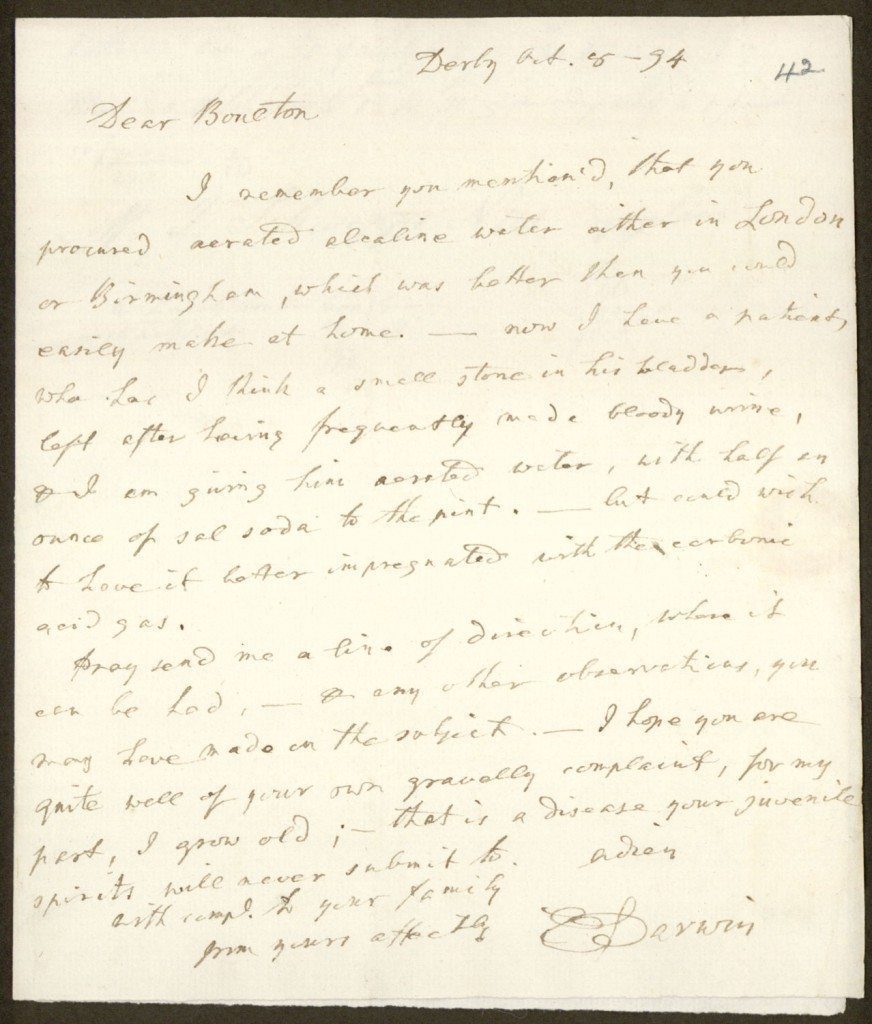 Derby Oct. 8 - 94
42
Dear Boulton
I remember you mention'd, that you
procured aerated alcaline water either in London
or Birmingham, which was better than you could
easily make at home. — now I have a patient,
who has I think a small stone in his bladder,
left after having frequently made bloody urine,
& I am giving him aerated water, with half an
ounce of sal soda to the pint. — but could wish
to have it better impregnated with the carbonic
acid gas.
Pray send me a line of direction, where it
can be had, — & any other observations, you
may have made on the subject. — I hope you are
quite well of your own gravelly complaint, for my
part, I grow old; — that is a disease your juvenile
spirits will never submit to. adieu
with compl. to your family
from yours affectly
E Darwin